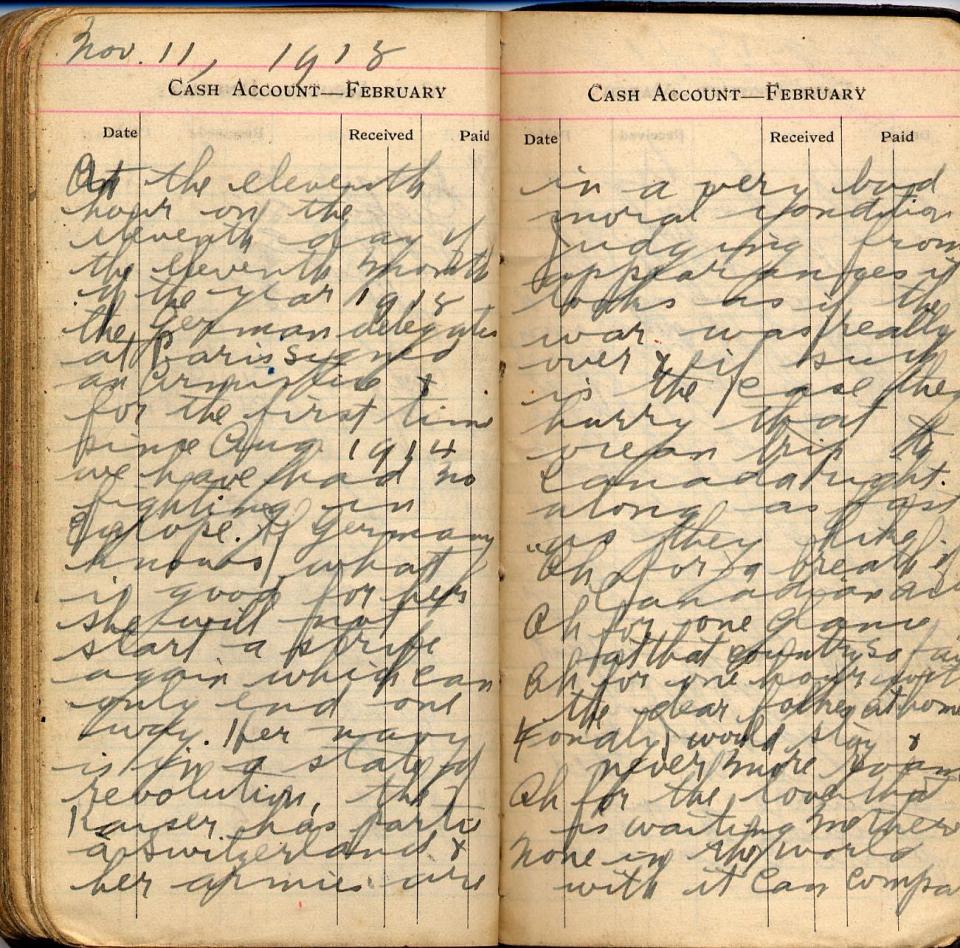 Nov. 11, 1918
CASH ACCOUNT—FEBRUARY
Date Received Paid
At the eleventh
hour on the
eleventh day of
the eleventh month
of the year 1918
the German delegates
at Paris signed
an Armistice &
for the first time
since Aug 1914
we have had no
fighting in
Europe. If Germany
knows what
is good for her
she will not
start a strife
again which can
only end one
way. Her navy
is in a state of
revolution, the
Kaiser has parti
a Switzerland &
her armies are
CASH ACCOUNT—FEBRUARY
Date Received Paid
in a very bad
moral condition
Judging from
appearances it
looks as if the
war was really
over & if such
is the case then
hurry that
ocean trip to
Canada right.
along as fast
as they like.
"Oh for a breath of
Canadian air
Oh for one glance
at that country so fair
Oh for one hour with
the dear folks at home
Fondly would stay &
never more roam
Oh for the love that
is waiting me there
None in the world
with it can compa